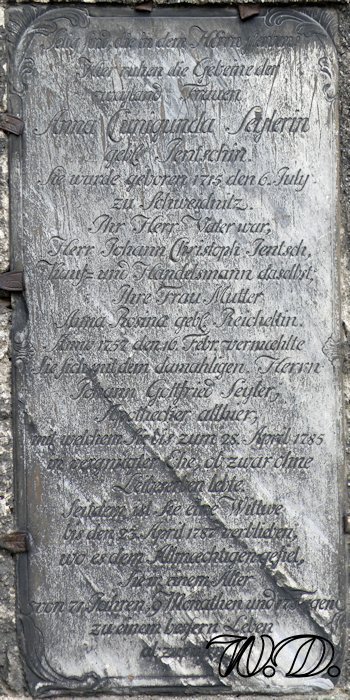 Selig sind die in dem Herrn sterben
Hier ruhen die Gebeine der
weyland Frauen
Anna Cunigunda Seylerin
gebß Jentschin.
Sie wurde geboren 1715 den 6. July
zu Schweidnitz.
Ihr Herr Vater war,
Herr Johann Christoph Jentsch,
und Handelsmann daselbst,
Ihre Frau Mutter
Anna Rosina gebß Reicheltin.
Anno 1752 den 10. Febr. vermaehlte
Sie sich mit dem damahligen Herrn
Johann Gottfried Seyler,
Apothecker allhier,
mit welchem Sie bis zum 28. April 1785
in vergnügter Ehe, ob zwar ohne
Leibeserben lebte.
Seitdem ist Sie eine Wittwe
bis den 23. April 1787 verblieben,
wo es dem Allmaechtigen gefiel,
Sie in einem Alter
von 71 Jahren, 9 Monathen und Tagen
zu einem bessern Leben
W.D.